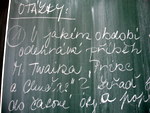 OTÁZKY:
1) V jakém období
odehrává příběh
M. Twaina „Princ
a chuďas"? Zařaď
do časové osy a pop